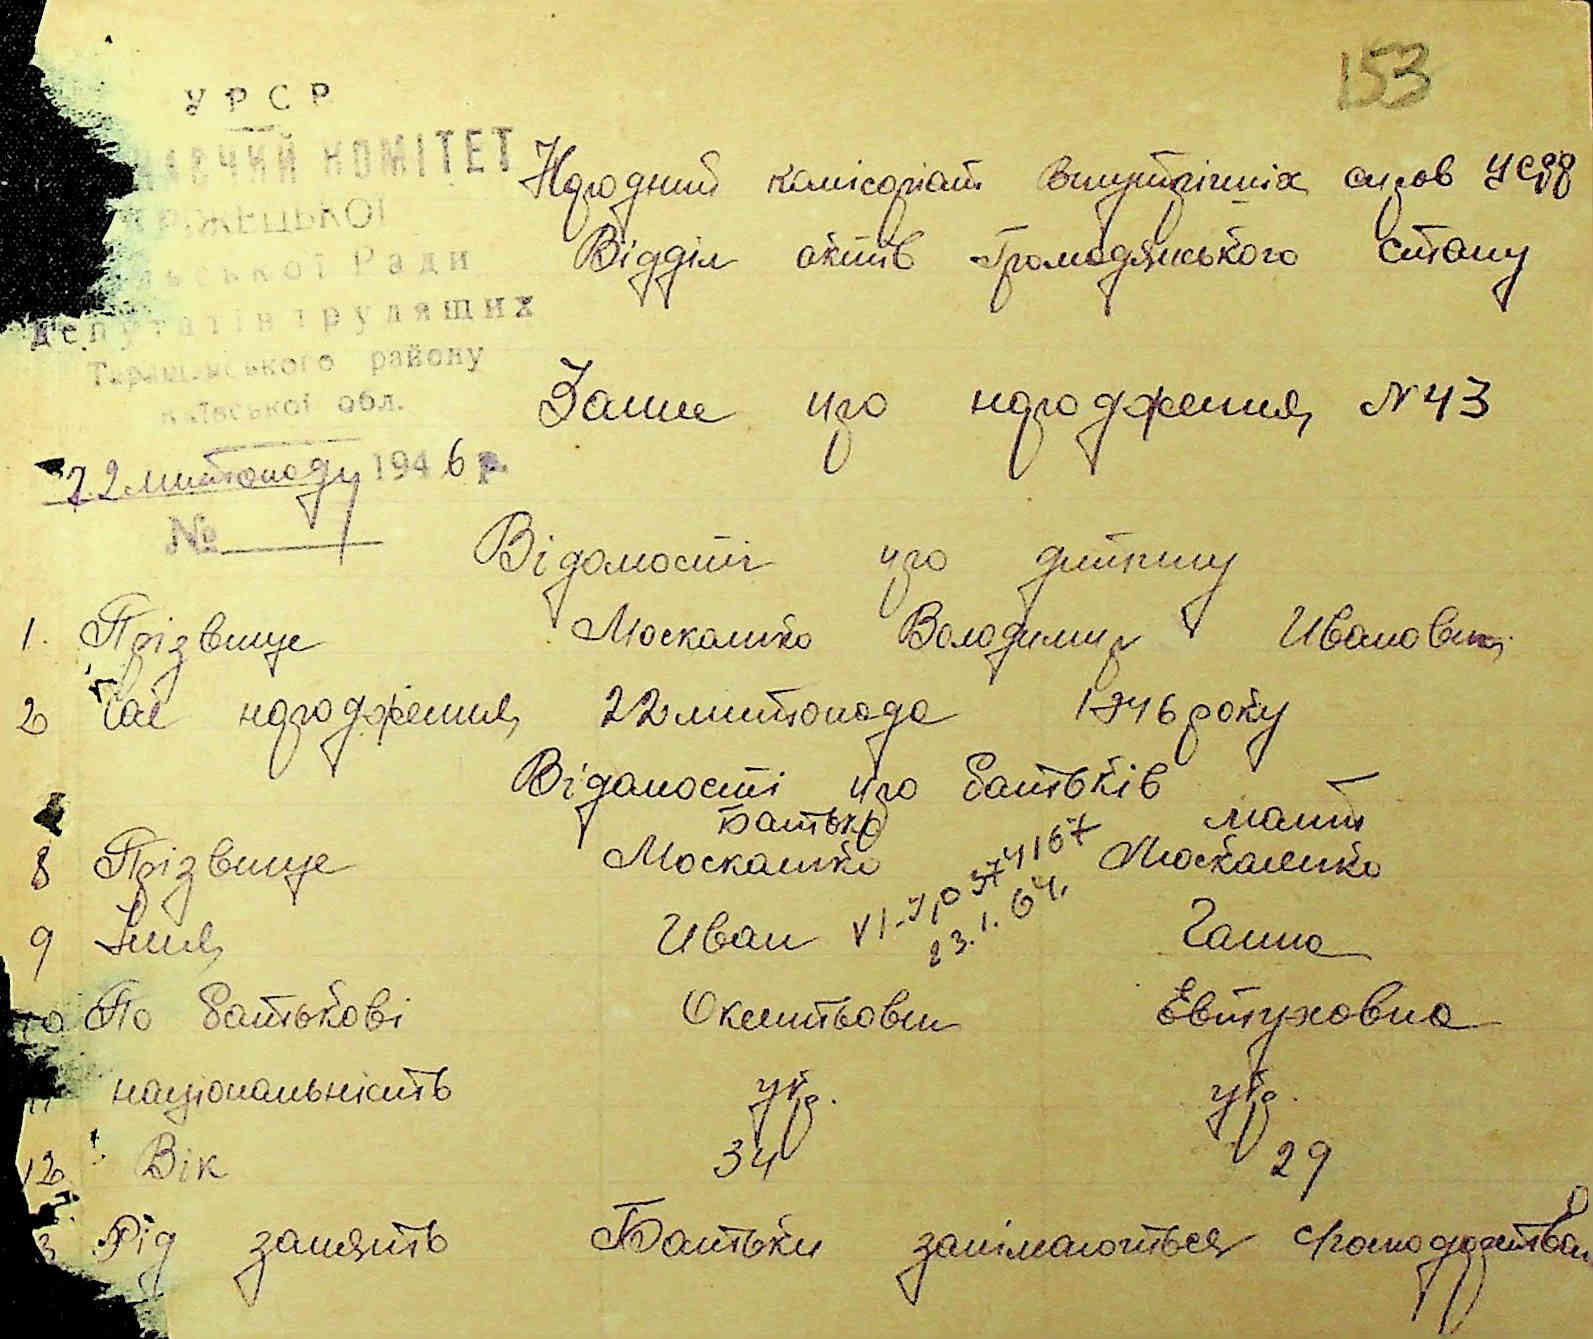 153
УРСР
КОМІТЕТ
Ради
депутатів трудящих
Таращанського району
Київської обл.
22 листопаду 1946 р.
№
Народний комісаріат Внутрішніх справ УСРР
Відділ актів Громадянського стану
Запис про народження N 43
Відомості про дитину
1. Прізвище Москаленко Володимир Иванович
2 Час народження 22 листопада 1946 року
Відомості про батьків
Батько мати
8 Прізвище Москаленко Москаленко
9 Імия Иван Ганна
VI-УЮ 374167
23.1.64.
10 По батькові Евтуховна
11 національність укр. укр.
12 Вік 34 29
13 Рід занять Батьки занімаються